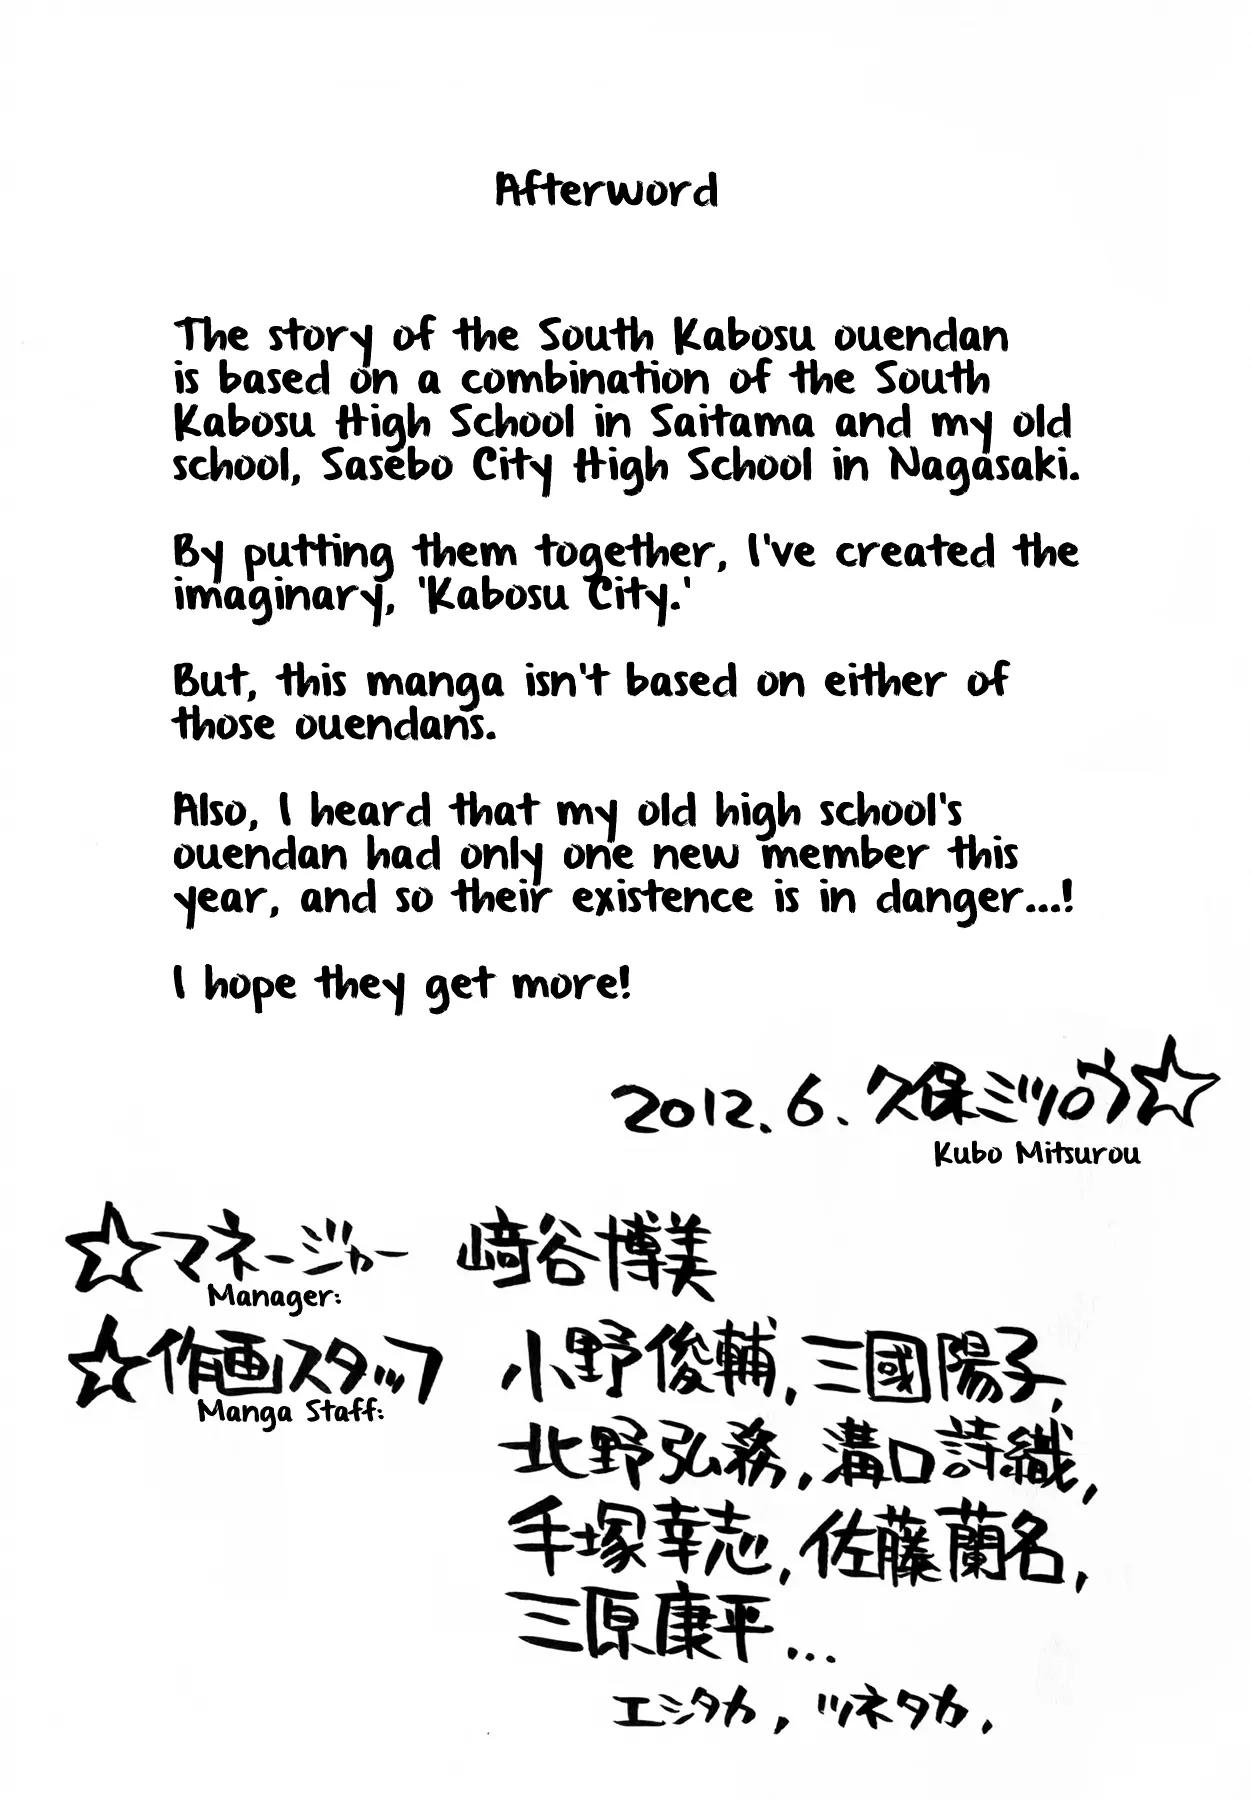 Afterword
The story of the South Kabosu ouendan
is based on a combination of the South
Kabosu High School in Saitama and my old
school, Sasebo City High School in Nagasaki.
By putting them together, I've created the
imaginary, 'Kabosu City.'
But, this manga isn't based on either of
those ouendans.
Also, I heard that my old high school's
ouendan had only one new member this
year, and so their existence is in danger...!
I hope they get more!
2012.6.久保ミツロウ☆
Kubo Mitsurou
☆マネージャー 﨑谷博美
Manager:
☆作画スタッフ 小野俊輔,三國陽子,
Manga Staff:
北野弘務,溝口詩織,
手塚幸志,佐藤蘭名,
三原康平...
エシタカ,ツネタカ,